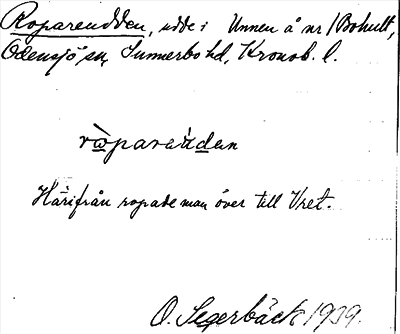 Ropareudden, udde i Unnen å nr 1 Bohult,
Odensjö sn, Sunnerbo hd, Kronob. l.
ròpareùdden
Härifrån ropade man över till Vret.
O. Segerbäck 1939.